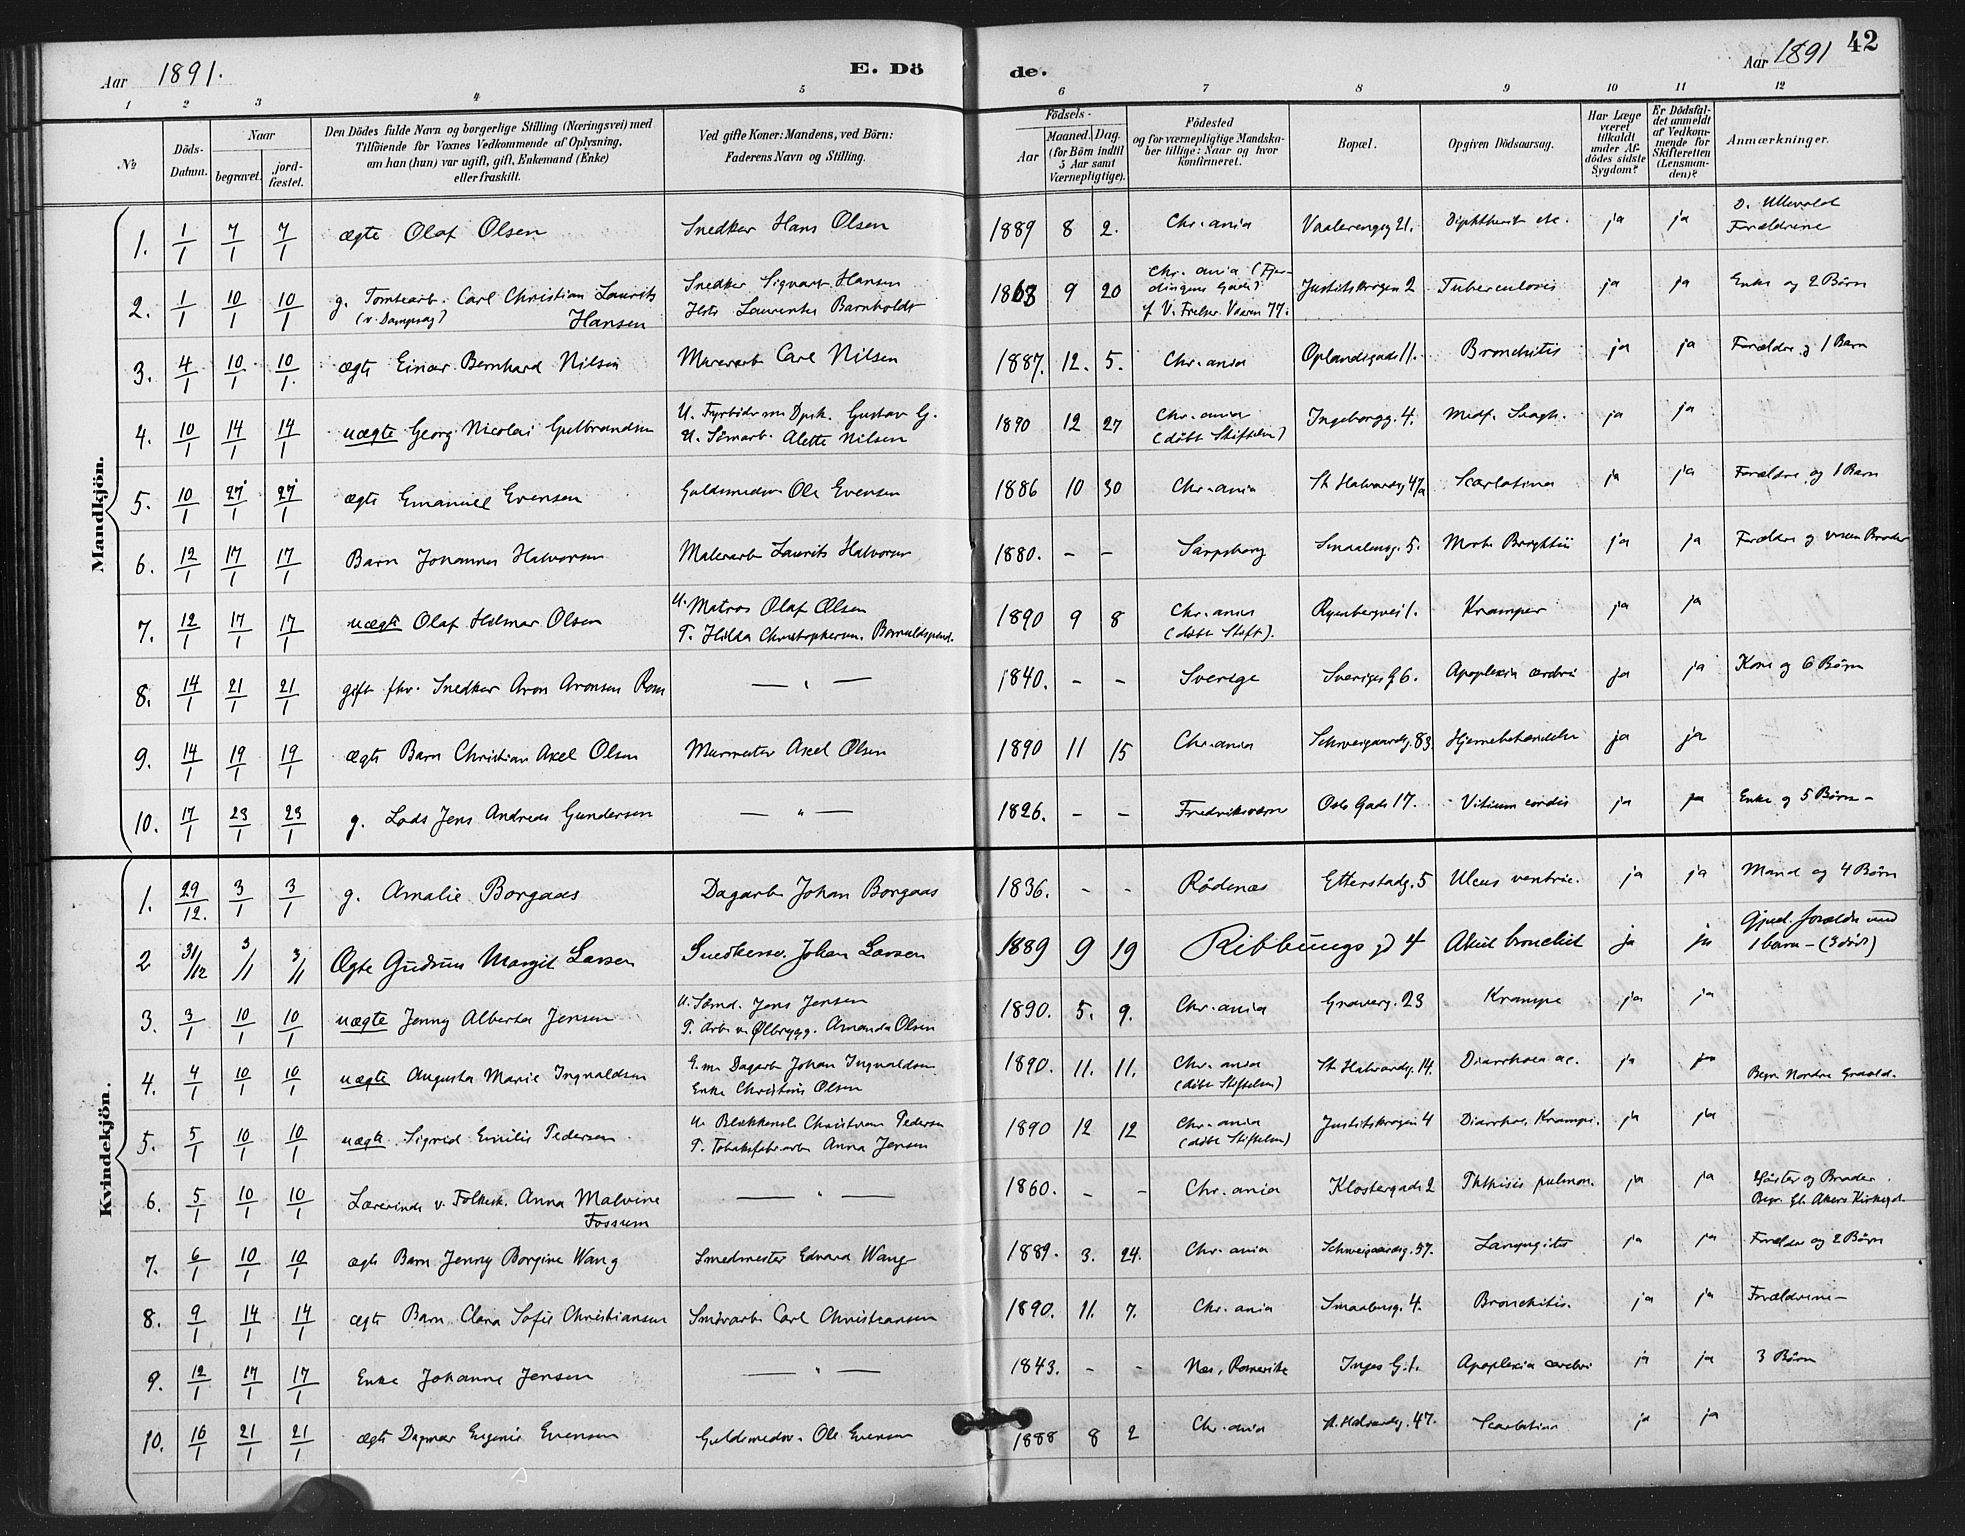 42
Aar 1891. E. Dö de. Aar 1891
1 2 3 4 5 6 7 8 9 10 11 12
No
Döds-Datum.
Naar
begravet. jordfæstet.
Den Dödes fulde Navn og borgerlige Stilling (Næringsvei) med
Tilföiende for Voxnes Vedkommende af Oplysning,
om han (hun) var ugift, gift, Enkemand (Enke)
eller fraskilt.
Ved gifte Koner: Mandens, ved Börn:
Faderens Navn og Stilling.
Födsels-
Aar Maaned. Dag.
(for Börn indtil
5 Aar samt
Værnepligtige).
Födested
og for værnepligtige Mandska-
ber tillige: Naar og hvor
konfirmeret.
Bopæl.
Opgiven Dödsaarsag.
Har Læge
været
tilkaldt
under Af-
dödes sidste
Sygdom?
Er Dödsfal-
det anmeldt
af Vedkom-
mende for
Skifteretten
(Lensman-
den)?
Anmærkninger.
Mandkjön.
1. 1/1 7/1 7/1 ægte Olaf Olsen Snedker Hans Olsen 1889 8 2. Chr.ania Vaalerengg 21. Diphtherit etc. ja ja Forældrene
2. 1/1 10/1 10/1 g. Tomtearb. Carl Christian Laurits
(v. Dampsag) Hansen Snedker Sigvart Hansen
Laurentse Barnholdt 1868 9 20 Chr. ania (Fjer-
dingens Gade)
V. Frelser. Vaaren 77. Justitskrogen 2 Tuberculosis ja ja Enke og 2 Börn
3. 4/1 10/1 10/1 ægte Einar Bernhard Nilsen Murerarb Carl Nilsen 1887. 12. 5. Chr.ania Oplandsgade 11. Bronchitis ja ja Forældre og 1 Barn
4. 10/1 14/1 14/1 uægte Georg Nicolai Gulbrandsen U. Fyrböder Gustav G.
U. Sömarb. Alette Nilsen 1890 12 27 Chr.ania
(döbt Stiftelsen) Ingeborgg. 4. ja ja
5. 10/1 27/1 27/1 ægte Emanuel Evensen Guldsmedsv Ole Evensen 1886 10 30 Chr.ania St Halvardsg 47a Scarlatina ja ja Forældre og 1 Barn
6. 12/1 17/1 17/1 Barn Johannes Halvorsen Malerarb Laurits Halvorsen 1880. – – Sarpsborg Smaalensg. 5. ja ja Forældre og voxen Broder
7. 12/1 17/1 17/1 uægte Olaf Hilmar Olsen U. Matros Olaf Olsen
T. Hilda Christophersen. 1890 9 8 Chr.ania
(döbt Stift). Ryenbergvei 1. Kramper ja ja
8. 14/1 21/1 21/1 gift fhv. Snedker Aron Aronsen Rom — " — 1840. – – Sverige Sveriges G 6. Apoplexia cerebri ja ja Kone og 6 Börn
9. 14/1 19/1 19/1 ægte Barn Christian Axel Olsen Murmester Axel Olsen 1890 11 15 Chr.ania Schweigaardsg. 83. Hjernebetændelse ja ja
10. 17/1 23/1 23/1 g. Lods Jens Andreas Gundersen — " — 1826. – – Fredriksværn Oslo Gade 17. Vitium cordis ja ja Enke og 5 Börn –
Kvindekjön.
1. 29/12. 3/1 3/1 g. Amalie Borgaas Dagarb Johan Borgaas 1836. – – Rödenæs Etterstadg. 5 Ulcus ventric. ja ja Mand og 4 Börn
2 31/12 3/1 3/1 Ægte Gudrun Margit Larsen Snedkersv. Johan Larsen 1889 9 19 Ribbungs gd 4 Akut bronchit ja ja Gjenl. forældre med
1 barn – (3 död)
3. 3/1 10/1 10/1 uægte Jenny Alberta Jensen U. Sömd. Jens Jensen
T. Arb v. Ølbrygg. Amanda Olsen 1890. 5. 9. Chr.ania Graverg. 23 Krampe ja ja
4. 4/1 10/1 10/1 uægte Augusta Marie Ingvaldsen G.m. Dagarb Johan Ingvaldsen
Enke Christine Olsen 1890. 11. 11. Chr.ania
(döbt Stiftelsen) St Halvardsg. 14. Diarrhoea ac. ja ja Begr. Nordre Gravld.
5. 5/1 10/1 10/1 uægte Sigrid Emilie Pedersen U. Blikkensl. Christian Pedersen
T. Tobaksfabr.arb. Anna Jensen 1890 12 12 Chr.ania
(döbt Stiftelsen) Justitskrogen 4 Diarrhoe, Krampe. ja ja
6. 5/1 10/1 10/1 Lærerinde v. Folkesk. Anna Malvine
Fossum — " — 1860. – – Chr.ania Klostergade 2 Phthisis pulmon. ja ja Söster og Broder.
Begr. Gl. Akers Kirkegd.
7. 6/1 10/1 10/1 ægte Barn Jenny Borgine Wang Smedmester Edvard Wang 1889. 3. 24. Chr.ania Schweigaardsg. 57. Laryngitis ja ja Forældre og 2 Börn
8. 9/1 14/1 14/1 ægte Barn Clara Sofie Christiansen Carl Christiansen 1890. 11. 7. Chr.ania Smaalensg. 4. Bronchitis. ja ja Forældrene –
9. 12/1 17/1 17/1 Enke Johanne Jensen — " — 1843. – – Næs, Romerike Inges G. 1. Apoplexia cerebri ja ja 3 Börn
10. 16/1 21/1 21/1 ægte Dagmar Eugenie Evensen Guldsmedsv. Ole Evensen 1888 8 2 Chr.ania St. Halvardsg. 47. Scarlatina ja ja